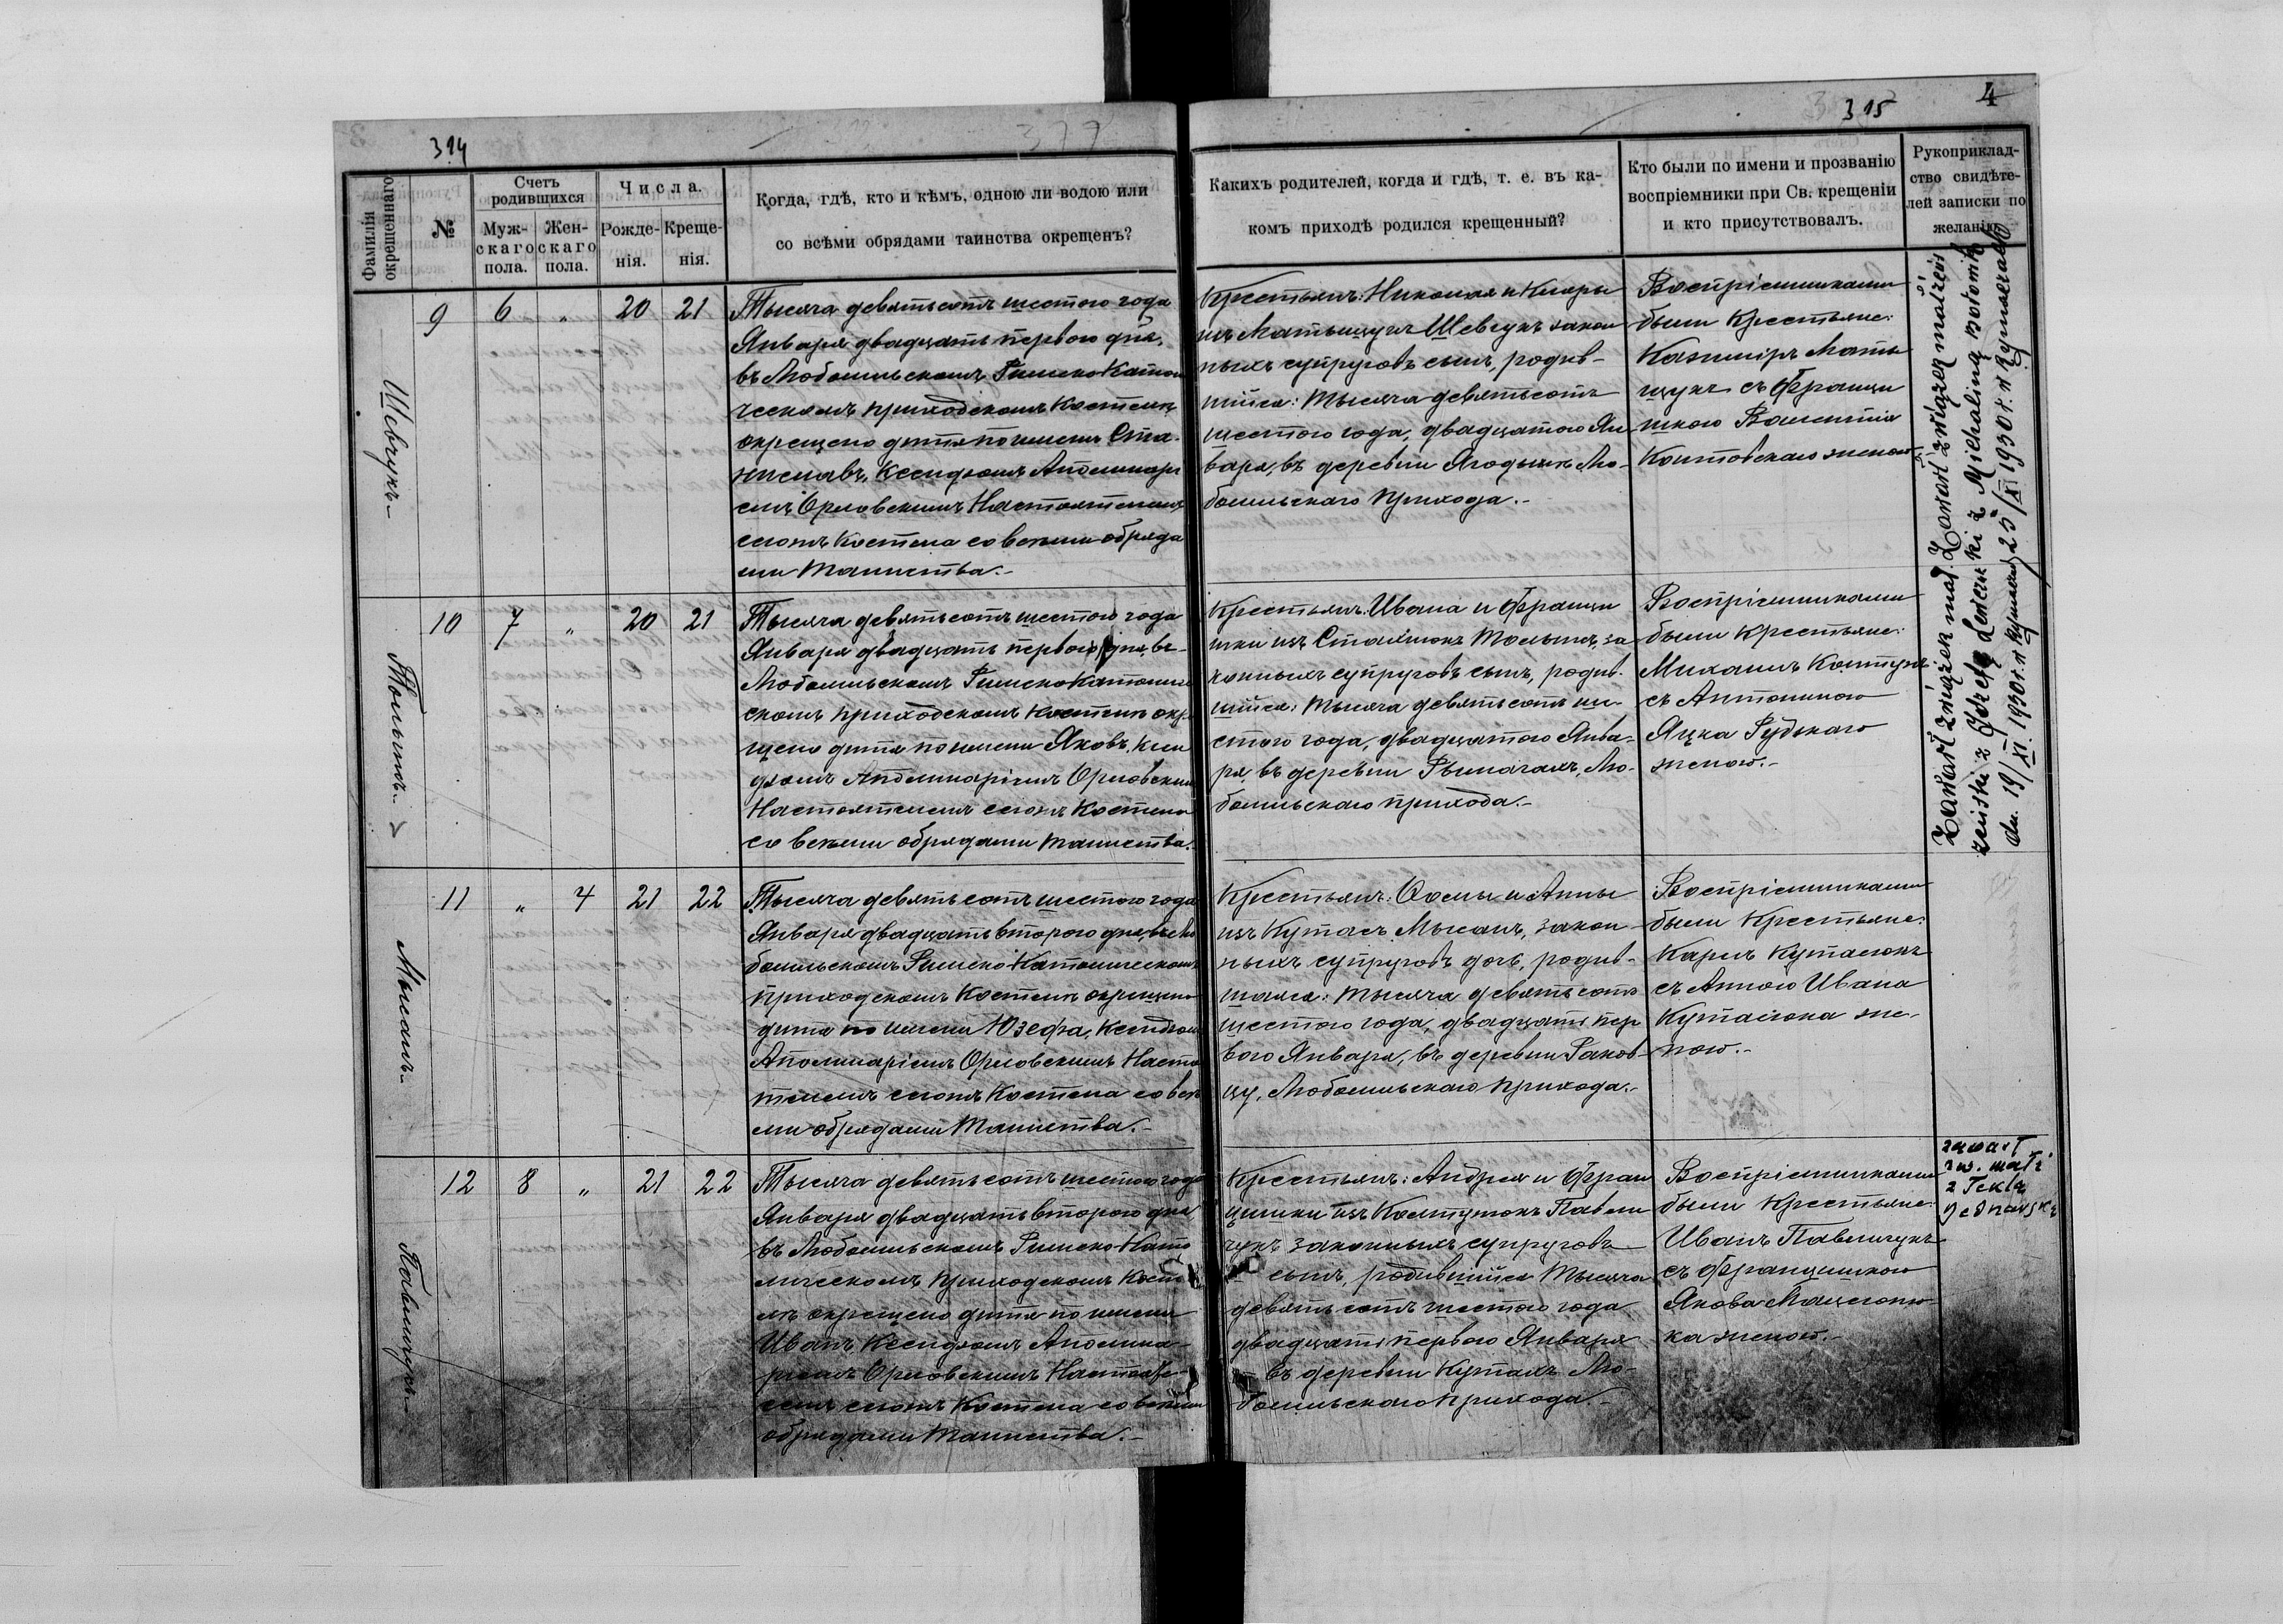 314
315
4
Фамилія окрещеннаго
№
Счетъ родившихся
Мужскаго пола.
Женскаго пола.
Числа.
Рожденія.
Крещенія.
Когда, гдѣ, кто и кѣмъ, одною ли водою или
со всѣми обрядами таинства окрещенъ?
Какихъ родителей, когда и гдѣ, т. е. въ ка-
комъ приходѣ родился крещенный?
Кто были по имени и прозванію
воспріемники при Св. крещеніи
и кто присутствовалъ.
Рукоприклад-
ство свидѣте-
лей записки по
желанію
Шевчукъ
9 6 „ 20 21
Тысяча девятьсотъ шестого года
Января двадцать перваго дня,
въ Любомльскомъ Римско Катол
ческомъ приходскомъ костелѣ
окрещено дитя по имени Ста-
ниславъ, Ксендзомъ Аполинарі
емъ Орловскимъ Настоятелемъ
сегожъ Костела со всѣми обряда
ми Таинства.-
Крестьянъ: Николая и Клары
изъ Матыщукъ Шевчукъ закон
ныхъ супруговъ сынъ, родив-
шійся: Тысяча девятьсотъ
шестого года, двадцатого Ян
варя, въ деревни Ягодынѣ Лю-
бомльскаго прихода.-
Воспріемниками
были Крестьяне:
Казимиръ Маты
щукъ съ Франци
шкою Валентія
Колтовскаго женою
Толышъ
10 7 „ 20 21
Тысяча девятьсотъ шестого года
Января двадцать перваго дня, въ
Любомльскомъ Римско Католиче
скомъ приходскомъ костелѣ окре
щено дитя по имени Яковъ, Ксен
дзомъ Аполинаріемъ Орловскимъ
Настоятелемъ сегожъ Костела
со всѣми обрядами таинства.
Крестьянъ: Ивана и Францы
шки изъ Толышъ, за
конныхъ супруговъ сынъ, родив-
шійся: Тысяча девятьсотъ ше-
стого года, двадцатого Янва-
ря въ деревни Рымачахъ, Лю-
бомльскаго прихода.-
Воспріемниками
были крестьяне:
Михаилъ Колтунъ
съ Антониною
Яцка Рудскаго
женою.-
Мысанъ
11 „ 4 21 22
Тысяча девятьсотъ шестого года
Января двадцать второго дня, въ Лю
бомльскомъ Римско-Католическомъ
приходскомъ Костелѣ окрещено
дитя по имени Юзефа, Ксендзом
Аполинаріемъ Орловскимъ Насто
телемъ сегожъ Костела со всѣ
ми обрядами Таинства.-
Крестьянъ: Ѳомы и Анны
изъ Кутасъ Мысанъ, закон
ныхъ супруговъ дочь, родив-
шаяся: Тысяча девятьсотъ
шестого года, двадцать пер
вого Января, въ деревни Раков-
цу, Любомльскаго прихода.-
Воспріемниками
были Крестьяне:
Карлъ Кутасюкъ
съ Анною Ивана
Кутасюка же-
ною.-
Павлищукъ
12 8 „ 21 22
Тысяча девятьсотъ шестого года
Января двадцать второго дня
въ Любомльскомъ Римско Като
лическомъ приходскомъ Косте
лѣ окрещено дитя по имени
Иванъ, Ксендзомъ Аполина-
ріемъ Орловскимъ
сегожъ Костела со всѣми
обрядами Таинства.-
Крестьянъ: Андрея и Фран
цишки изъ Павли
чукъ законныхъ супруговъ
сынъ, родившійся Тысяча
девятьсотъ шестого года
двадцать перваго Января
въ деревни Кутахъ Лю-
бомльскаго прихода
Воспріемниками
были Крестьяне:
Иванъ Павличукъ
съ Францишкою
Якова Мацегонь
ка женою.-
Zawarł związek mał
żeński z Józefą
dn. 19/XI. 1930 r. w Rymaczach
Zawarł związek małżeń
ski z Michaliną
25/XI 1930 r. w Rymaczach
zawarł
zw. małż.
z Teklą